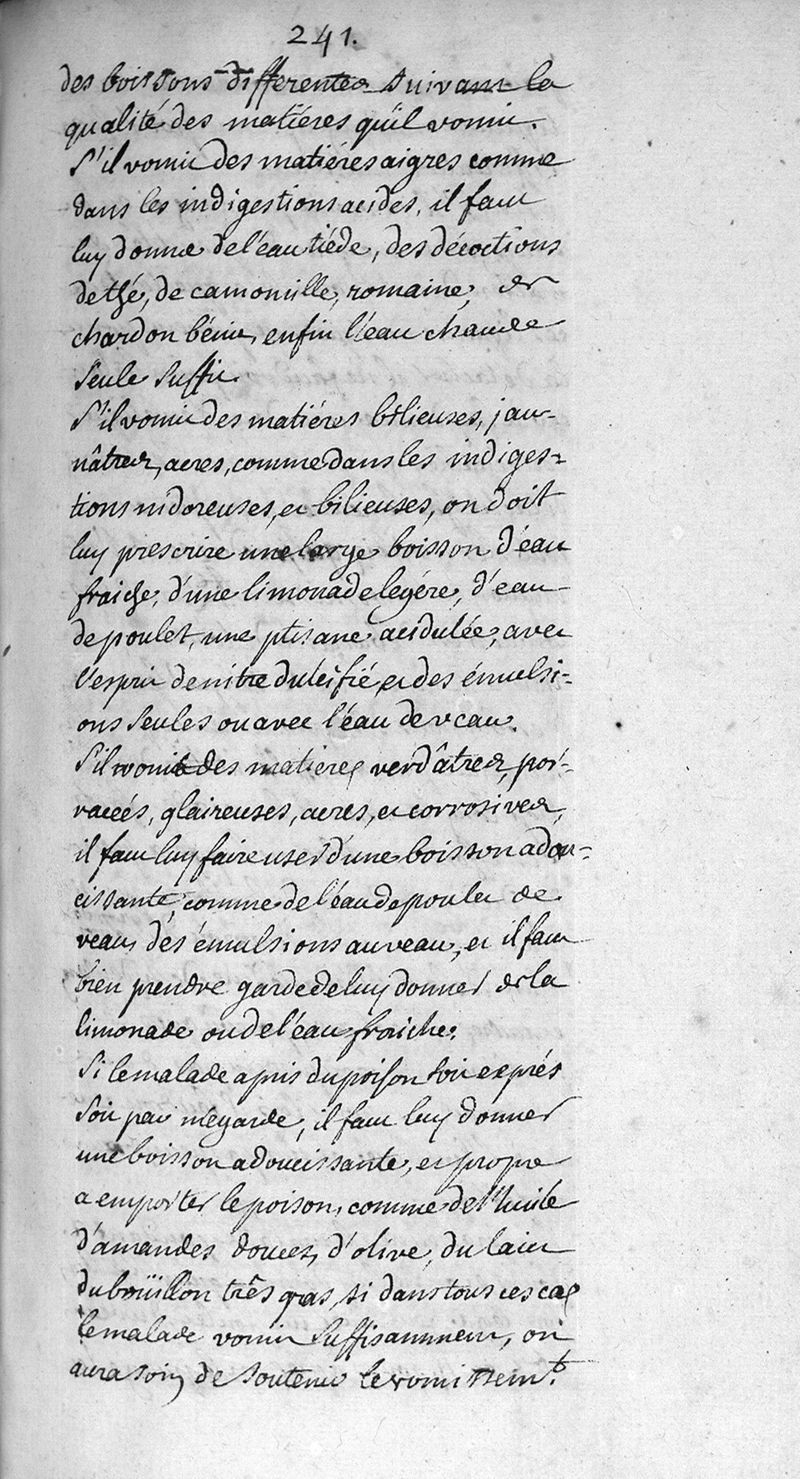 241.
des boissons differentes suivant la
qualité des matiéres qu'il vomit.
S'il vomit des matiéres aigres comme
dans les indigestions acides, il faut
luy donner de l'eau tiéde, des décoctions
de thé, de camomille, romaine, de
chardon bénit, enfin l'eau chaude
seule suffit.
S'il vomit des matiéres bilieuses, jau-
nâtres, acres, comme dans les indiges=
tions nidoreuses, et bilieuses, on doit
luy prescrire une large boisson d'eau
fraiche, d'une limonade legére, d'eau
de poulet, une ptisane acidulée, avec
l'esprit de nitre dulcifié et des émulsi=
ons seules ou avec l'eau de veau.
S'il vomit des matieres verdâtres, por-
racées, glaireuses, acres, et corrosives,
il faut luy faire user d'une boisson adou=
cissante, comme de l'eau de poulet de
veau, des émulsions au veau, et il faut
bien prendre garde de luy donner de la
limonade ou de l'eau fraiche.
Si le malade a pris du poison soit exprés
soit par mégarde, il faut luy donner
une boisson adoucissante, et propre
a emporter le poison, comme de l'huile
d'amandes douces, d'olive, du lait
du boüillon trés gras, si dans tous ces cas
le malade vomit suffisamment, on
aura soin de soutenir le vomissemt.